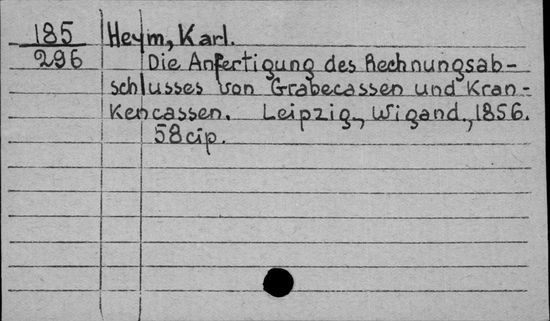 185 Heym, Karl.
296 Die Anfertigung des Rechnungsab-
schlusses von Grabecassen und Kran-
Kencassen. Leipzig, Wigand, 1856.
58 cip.